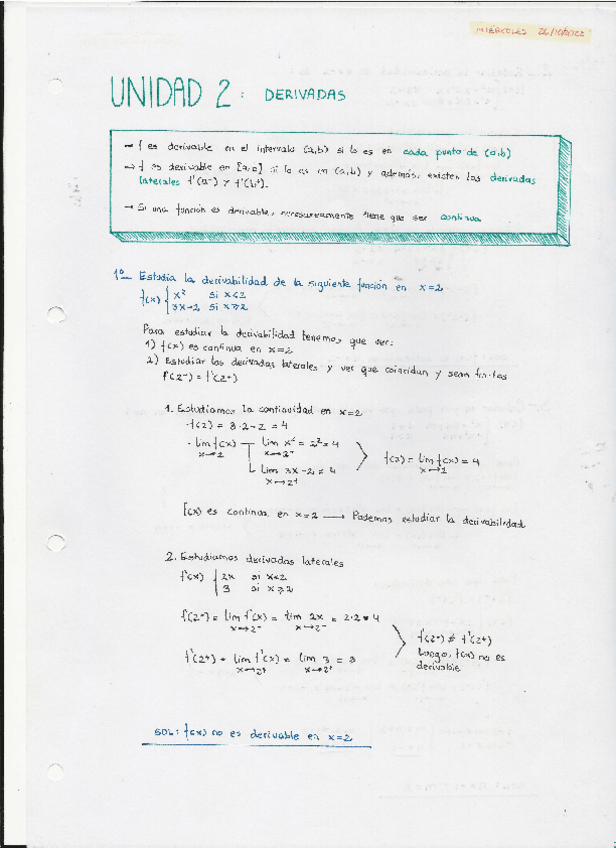 MIÉRCOLES 26/10/2022
UNIDAD 2: DERIVADAS
→ f es derivable en el intervalo (a,b) si lo es en cada punto de (a,b)
→ f es derivable en [a,b] si lo es en (a,b) y además, existen las derivadas
laterales f'(a⁻) y f'(b⁺).
→ Si una función es derivable, necesariamente tiene que ser continua
1º Estudia la derivabilidad de la siguiente función en x=2
f(x) { x² si x<2
3x-2 si x≥2
Para estudiar la derivabilidad tenemos que ver:
1) f(x) es continua en x=2
2) Estudiar las derivadas laterales y ver que coincidan y sean finitas
f'(2⁻) = f'(2⁺)
1. Estudiamos la continuidad en x=2
· f(2) = 3·2-2 = 4
· lim f(x) lim x² = 2² = 4
x→2 x→2⁻
f(2) = lim f(x) = 4
x→2
lim 3x-2 = 4
x→2⁺
f(x) es continua en x=2 → Podemos estudiar la derivabilidad
2. Estudiamos derivadas laterales
f'(x) { 2x si x<2
3 si x≥2
f'(2⁻) = lim f'(x) = lim 2x = 2·2 = 4
x→2⁻ x→2⁻
f'(2⁻) ≠ f'(2⁺)
Luego, f(x) no es
derivable
f'(2⁺) = lim f'(x) = lim 3 = 3
x→2⁺ x→2⁺
SOL: f(x) no es derivable en x=2